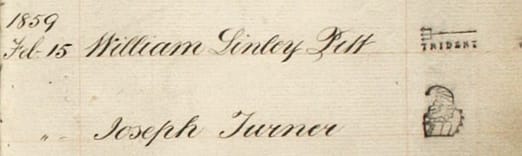 1859
Feb. 15 William Linley Pitt
TRIDENT
" Joseph Turner